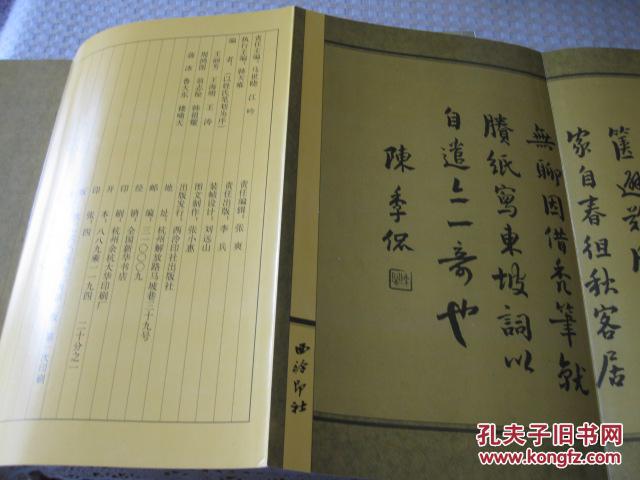 篋避
家自春徂秋客居
無聊因借禿筆就
賸紙寫東坡詞以
自遣亦一奇也
陳季侃
西泠印社
责任主编 马世晓 江吟
执行主编 韩天雍
编者(以姓氏笔划为序)
王丽芳 王海明 王涛
周鸿图 翁志飞 韩祖耀
蒋冰 鲁大东 楼啸天
责任编辑、张爽
责任出版、李兵
装帧设计、刘远山
图文制作、张小惠
出版发行、西泠印社出版社
地址、杭州解放路马坡巷三十九号
邮编、三一〇〇〇九
经销、全国新华书店
印刷、杭州余杭大华印刷厂
开本、八八九乘一一九四 二十分之一
印张、四
次印刷
孔夫子旧书网
www.kongfz.com